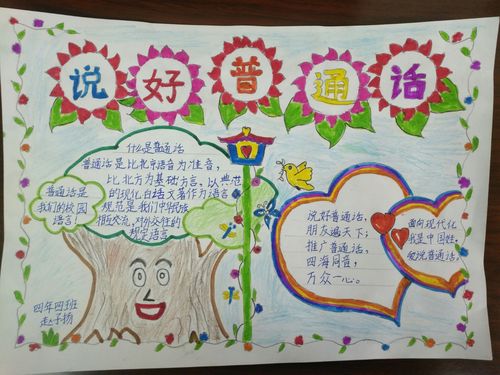 说好普通话
什么是普通话
普通话是比北京语音为准音,
比北方为基础方言。以典范
的现化白结文著作为语言
规范是我们中华民族
相互交流,对外交往的
规定语言
普通话是
我们的校园
语言
四年四班
赵子扬
说好普通话,
朋友遍天下;
推广普通话,
四海同音,
万众一心。
面向现代化
我是中国娃,
爱说普通话,